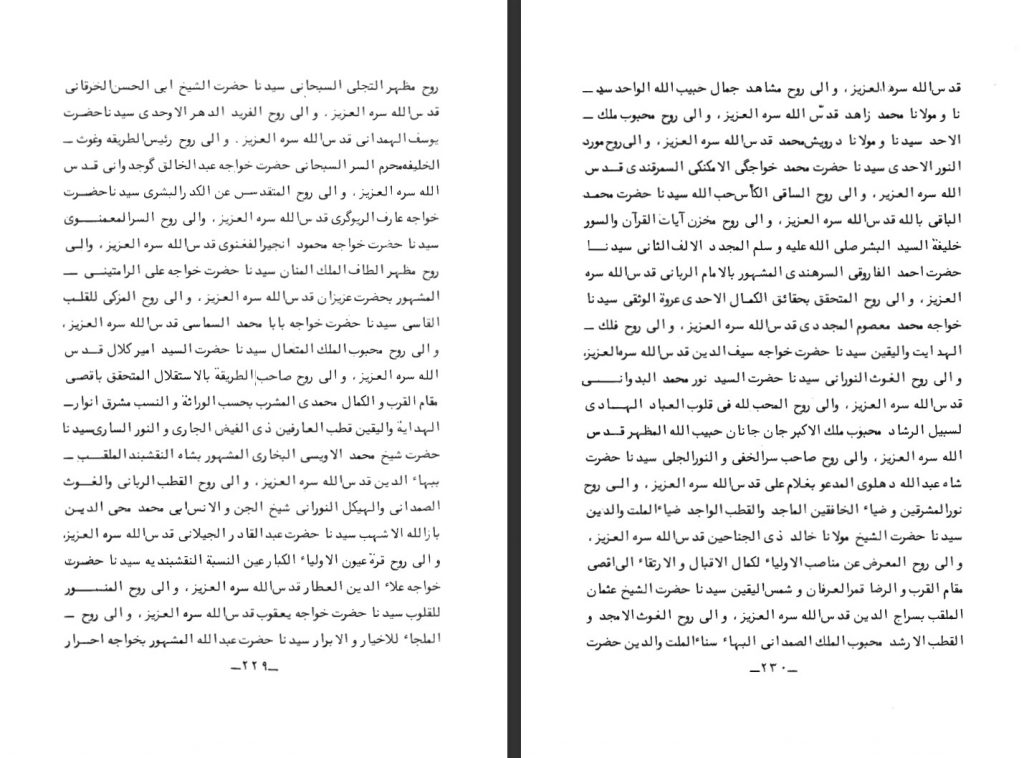 روح مظهر التجلی السبحانی سیدنا حضرت الشیخ ابی الحسن الخرقانی
قدس الله سره العزیز ، و الی روح الفرید الدهر الاوحدی سیدنا حضرت
یوسف الهمدانی قدس الله سره العزیز . و الی روح رئیس الطریقه وغوث ــ
الخلیفه محرم السر السبحانی حضرت خواجه عبد الخالق گوجدوانی قدس
الله سره العزیز ، و الی روح المتقدسس عن الکدر البشری سیدنا حضرت
خواجه عارف الریوگری قدس الله سره العزیز ، والی روح السر المعمنوی
سیدنا حضرت خواجه محمود انجیر الفغنوی قدس الله سره العزیز ، والی
روح مظهر الطاف الملک المنان سیدنا حضرت خواجه علی الرامتینی ــ
المشهور بحضرت عزیزان قدس الله سره العزیز ، و الی روح المزکی للقلب
القاسی سیدنا حضرت خواجه بابا محمد السماسی قدس الله سره العزیز ،
و الی روح محبوب الملک المتعال سیدنا حضرت السید امیر کلال قدس
الله سره العزیز ، و الی روح صاحب الطریقة بالاستقلال المتحقق باقصی
مقام القرب و الکمال محمدی المشرب بحسب الوراثة و النسب مشرق انوار ــ
الهدایة والیقین قطب العارفین ذی الفیض الجاری و النور الساری سیدنا
حضرت شیخ محمد الاویسی البخاری المشهور بشاه النقشبند الملقب ــ
ببهاء الدین قدس الله سره العزیز ، و الی روح القطب الربانی والغوث
الصمدانی والهیکل النورانی شیخ الجن و الانس ابی محمد محی الدین
باز الله الاشهب سیدنا حضرت عبد القادر الجیلانی قدس الله سره العزیز،
و الی روح قرة عیون الاولیاء الکبار عین النسبة النقشبندیه سیدنا حضرت
خواجه علاء الدین العطار قدس الله سره العزیز ، و الی روح المنسور
للقلوب سیدنا حضرت خواجه یعقوب قدس الله سره العزیز ، و الی روح ــ
الملجاء للاخیار و الابرار سیدنا حضرت عبد الله المشهور بخواجه احرار
ــ۲۲۹ــ
قدس الله سره العزیز ، و الی روح مشاهد جمال حبیب الله الواحد سید ــ
نا و مولانا محمد زاهد قدّس الله سره العزیز ، و الی روح محبوب ملک ــ
الاحد سیدنا و مولانا درویش محمد قدس الله سره العزیز ، و الی روح مورد
النور الاحدی سیدنا حضرت محمد خواجگی الامکنکی السمرقندی قدس
الله سره العزیر ، و الی روح الساقی الکأس حب الله سیدنا حضرت محمد
الباقی بالله قدس الله سره العزیز ، و الی روح مخزن آیات القرآن والسور
خلیفة السید البشر صلی الله علیه و سلم المجدد الالف الثانی سیدنا
حضرت احمد الفاروقی السرهندی المشهور بالامام الربانی قدس الله سره
العزیز ، و الی روح المتحقق بحقائق الکمال الاحدی عروة الوثقی سیدنا
خواجه محمد معصوم المجددی قدس الله سره العزیز ، و الی روح فلک ــ
الهدایت والیقین سیدنا حضرت خواجه سیف الدین قدس الله سره العزیز،
و الی روح الغوث النورانی سیدنا حضرت السید نور محمد البدوانی
قدس الله سره العزیز ، والی روح المحب لله فی قلوب العباد الهادی
لسبیل الرشاد محبوب ملک الاکبر جان جانان حبیب الله المظهر قدس
الله سره العزیز ، والی روح صاحب سر الخفی و النور الجلی سیدنا حضرت
شاه عبد الله دهلوی المدعو بغلام علی قدس الله سره العزیز ، و الی روح
نور المشرقین و ضیاء الخافقین الماجد والقطب الواجد ضیاء الملت والدین
سیدنا حضرت الشیخ مولانا خالد ذی الجناحین قدس الله سره العزیز ،
و الی روح المعرض عن مناصب الاولیاء لکمال الاقبال و الارتقاء الی اقصی
مقام القرب و الرضا قمر العرفان و شمس الیقین سیدنا حضرت الشیخ عثمان
الملقب بسراج الدین قدس الله سره العزیز ، و الی روح الغوث الامجد و
القطب الارشد محبوب الملک الصمدانی البهاء سناء الملت والدین حضرت
ــ۲۳۰ــ